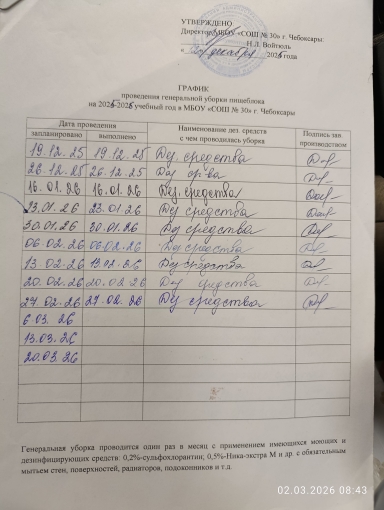 УТВЕРЖДЕНО
Директор МБОУ «СОШ № 30» г. Чебоксары
Н.Л. Войтюль
декабря 2025 года
ГРАФИК
проведения генеральной уборки пищеблока
на 2025-2026 учебный год в МБОУ «СОШ № 30» г. Чебоксары
Дата проведения Наименование дез. средств Подпись зав
запланировано выполнено с чем проводилась уборка производством
19.12.25 19.12.25 Дез. средства
26.12.25 26.12.25 Дез ср-ва
16.01.26 16.01.26 Дез. средства
23.01.26 23.01.26 Дез средства
30.01.26 30.01.26 Дез средства
06.02.26 06.02.26 Дез средства
13.02.26 13.02.26 Дез средства
20.02.26 20.02.26 Дез средства
27.02.26 27.02.26 Дез средства
6.03.26
13.03.26
20.03.26
Генеральная уборка проводится один раз в месяц с применением имеющихся моющих и
дезинфицирующих средств: 0,2%-сульфохлорантин; 0,5%-Ника-экстра М и др. с обязательным
мытьем стен, поверхностей, радиаторов, подоконников и т.д.
02.03.2026 08:43